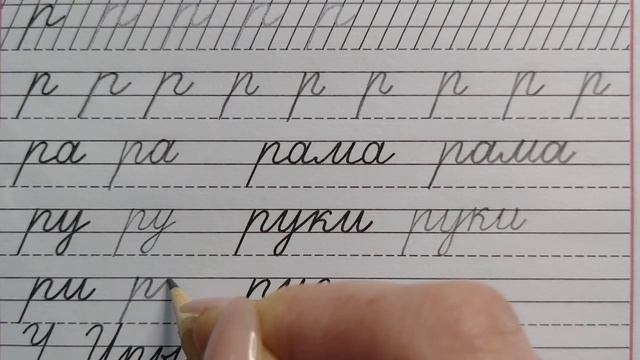 р р р р р
р р р р р р р р р
ра ра рама рама
ру ру руки руки
ри р рис